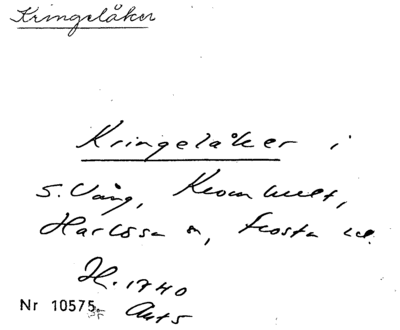 Kringelåker
Kringelåker i
S. Vång, Kvarnhult,
Harlösa sn, Frosta hd.
H. 1740
Nr 10575. Akt 5